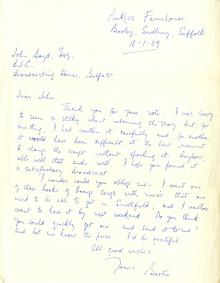 Pinkiss Farmhouse,
Boxley, Sudbury, Suffolk
18-1-59
John Boyd, Esq.,
B.B.C.
Broadcasting House, Belfast
Dear John,
Thank you for your note. I was sorry
to seem so sticky about shortening the story. But, for
one thing, I had written it carefully and for another
it would have been difficult at the last moment
to change the script without spoiling it. Anyhow,
all's well that ends well. I hope you found it
a satisfactory broadcast.
I wonder could you oblige me. I want one
of these books of Orange Songs with music that one
used to be able to get in Smithfield, and I rather
want to have it by next weekend. Do you think
you could quickly get one and send it to me?
And let me know the price. I'd be grateful.
All good wishes.
Yours